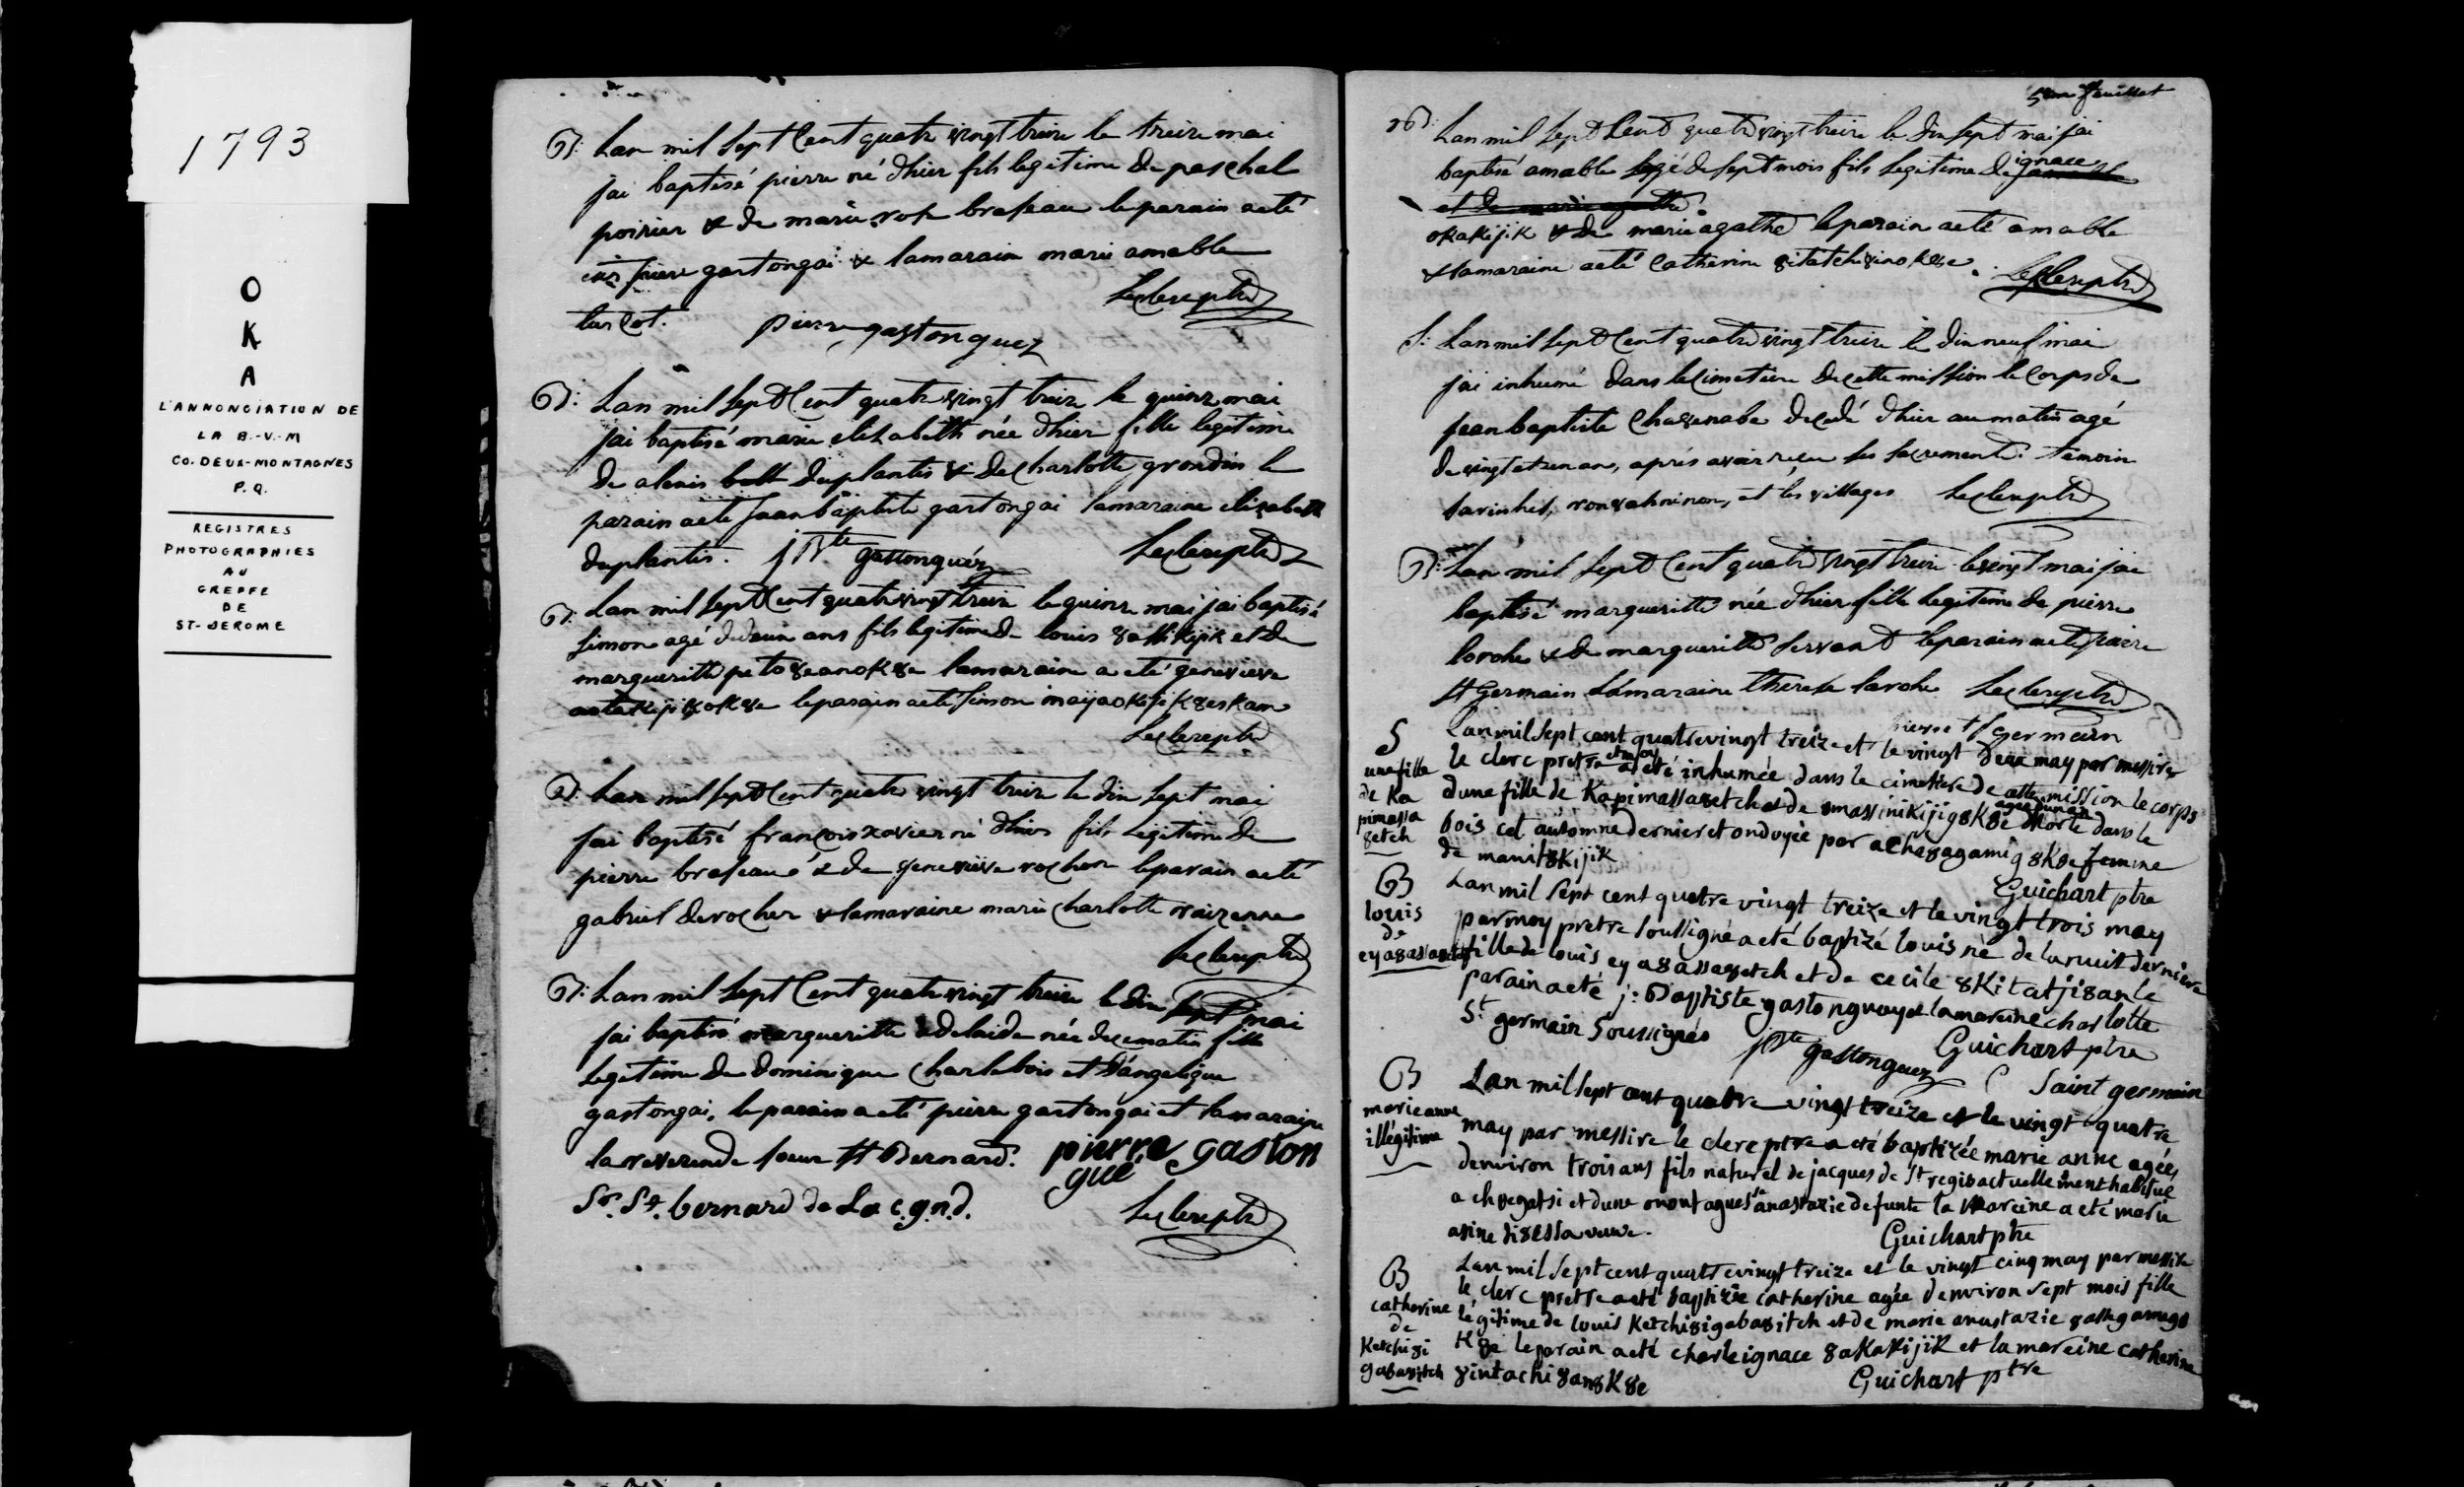 1793
O
K
A
L'ANNONCIATION DE
LA B.-V.-M
CO. DEUX-MONTAGNES
P.Q.
REGISTRES
PHOTOGRAPHIES
AU
GREFFE
DE
ST-JEROME
B: Lan mil sept Cent quatre vingt treize le treize mai
jai baptisé pierre né d'hier fils legitime de paschal
poirier & de marie rose braseau le parain a eté
pierre gastongai & la maraine marie amable
turcot. Leclerc ptre
pierre gastonguez
B: Lan mil sept Cent quatre vingt treize le quinze mai
jai baptisé marie elizabeth née d'hier fille legitime
de alexis duplantis & de Charlotte grondin le
parain a eté jean baptiste gastongai la maraine elizabeth
duplantis. j Bte gastonguéz Leclerc ptre
B: Lan mil sept Cent quatre vingt treize le quinze mai jai baptisé
simon agé de deux ans fils legitime de louis 8assikijik et de
margueritte petoseanok8e la maraine a eté genevieve
le parain a eté simon maijaokijik8eskam
Leclerc ptre
B: Lan mil sept Cent quatre vingt treize le dix sept mai
jai baptisé francois xavier né d'hier fils legitime de
pierre braseau & de genevieve rochon le parain a eté
gabriel derocher & la maraine marie Charlotte
Leclerc ptre
B: Lan mil sept Cent quatre vingt treize le dix sept mai
jai baptisé margueritte adelaide née de ce matin fille
legitime de dominique Charlebois et d'angelique
gastongai, le parain a eté pierre gastongai et la maraine
la reverende soeur St Bernard. pierre gaston
gué
Sr. St. bernard de La c.g.n.d. Leclerc ptre
5eme feuillet
B: Lan mil sept Cent quatre vingt treize le dix sept mai jai
baptisé amable agé de sept mois fils legitime de ignace
et de marie agathe
okakijik & de marie agathe le parain a eté amable
& la maraine a eté Catherine 8itatchi8inok8e. Leclerc ptre
S: Lan mil sept Cent quatre vingt treize le dix neuf mai
jai inhumé dans le Cimetiere de cette mission le Corps de
jean baptiste Cha8enabe decedé d'hier au matin agé
de vingt et un an, après avoir reçu les sacrements. temoin
et les villages Leclerc ptre
B: Lan mil sept Cent quatre vingt treize le vingt mai jai
baptisé margueritte née d'hier fille legitime de pierre
laroche & de margueritte servant le parain a eté pierre
St Germain la maraine therese laroche Leclerc ptre
pierre St germain
S Lan mil sept cent quatrevingt treize et le vingt deux may par messire
une fille le clerc pretre et moy a eté inhumée dans le cimetiere de cette mission le corps
de Ka dune fille de Kapimassa8etch et de 8massinikijig8k8e agée dun an morte dans le
pimassa bois cet automne dernier et ondoyée par acha8agamig8k8e femme
8etch de manit8kijik
Guichart ptre
B Lan mil sept cent quatre vingt treize et le vingt trois may
louis par moy pretre soussigné a eté baptizé louis né de la nuit derniere
de fille de louis eya8assa8etch et de cecile 8kitatji8an le
eya8assa8etch parain a eté j: Baptiste gastonguay et la mareine charlotte
St germain soussignés jBte gastonguez Guichart ptre
Saint germain
B Lan mil sept cent quatre vingt treize et le vingt quatre
marie anne may par messire le clerc ptre a eté baptizée marie anne agée
illégitime denviron trois ans fils naturel de jacques de St regis actuellement habitué
a chregatsi et dune onontagues anastazie defunte la mareine a eté marie
anne di8essa veuve.
Guichart ptre
B Lan mil sept cent quatrevingt treize et le vingt cinq may par messire
catherine le clerc pretre a eté baptizée catherine agée denviron sept mois fille
de légitime de louis Ketchi8igaba8itch et de marie anastazie 8a8hgamego
Ketchi8i k8e le parain a eté charle ignace 8akakijik et la mareine catherine
gaba8itch 8intachi8an8k8e
Guichart ptre